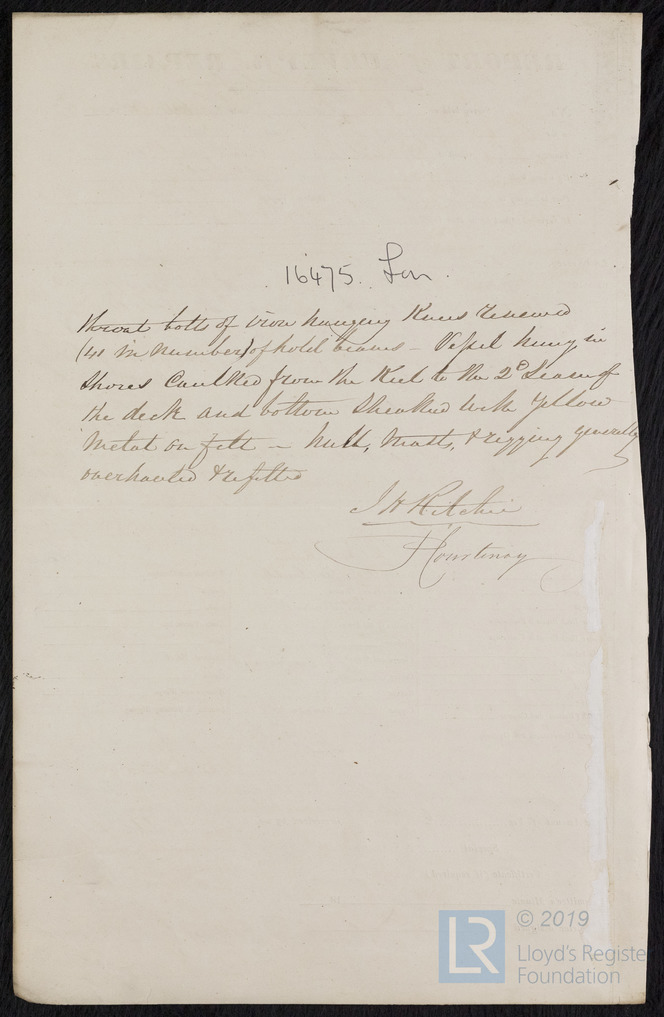 16475 Lon
throat bolts of Iron hanging Knees renewed
(41 in number) of hold beams - Vessel hung in
Shores Caulked from the Keel to the 2d Seam of
the deck and bottom Sheathed with Yellow
Metal on felt - hull, Masts, & rigging generally
overhauled & refitted
J H Ritchie
Courtenay
LR
© 2019
Lloyd's Registe
Foundation